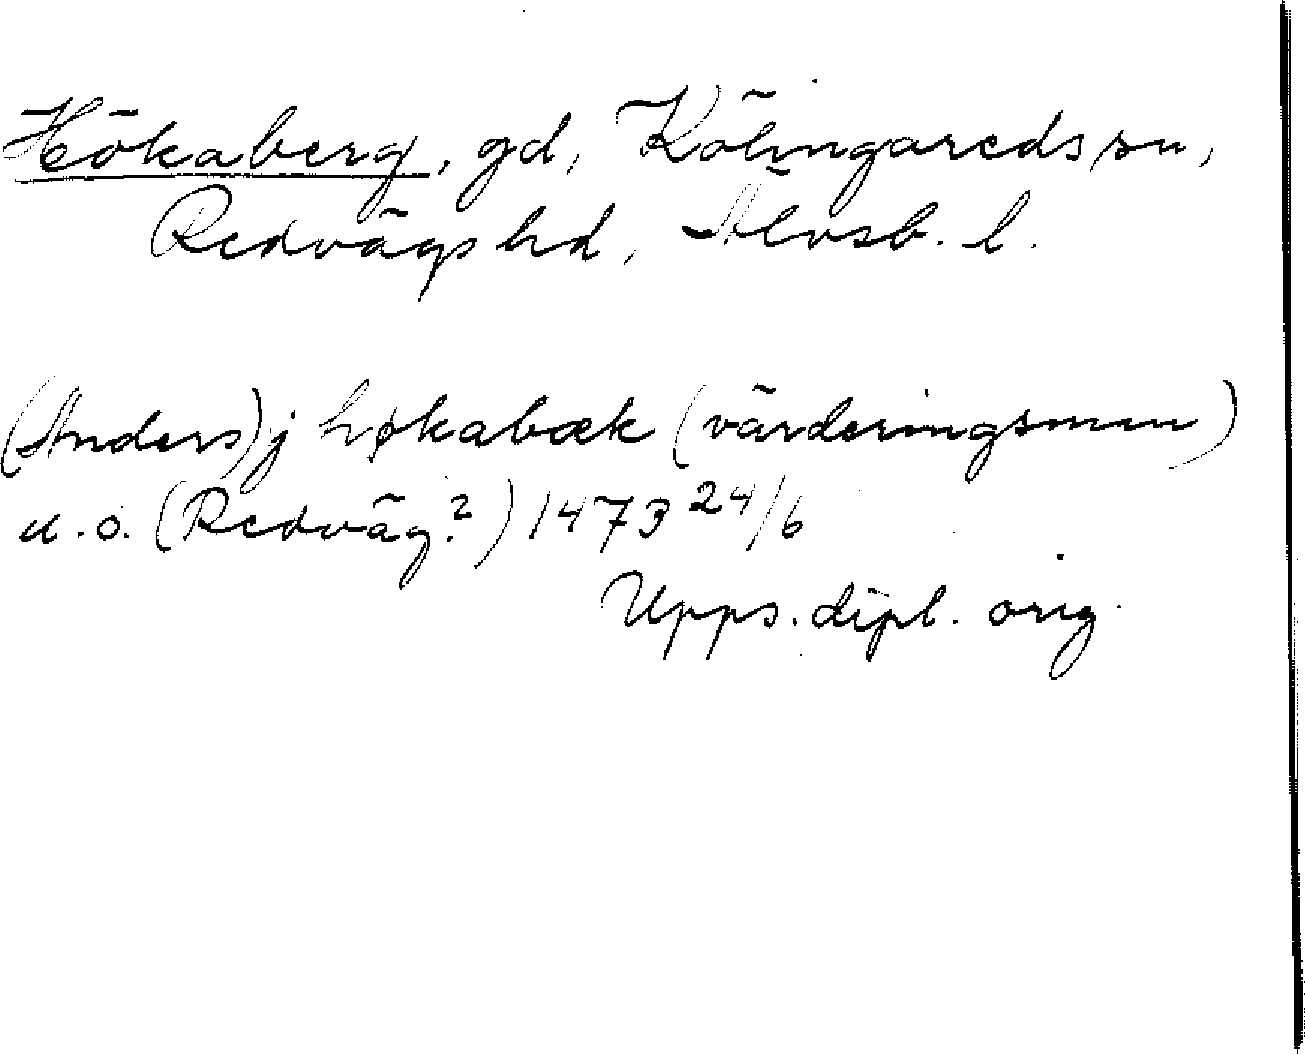 Hökaberg, gd, Kölingareds sn,
Redvägs hd, Älvsb. l.
(Anders) j høkabæk (värderingsman)
u. o. (Redväg?) 1473 24/6
Upps. dipl. orig.